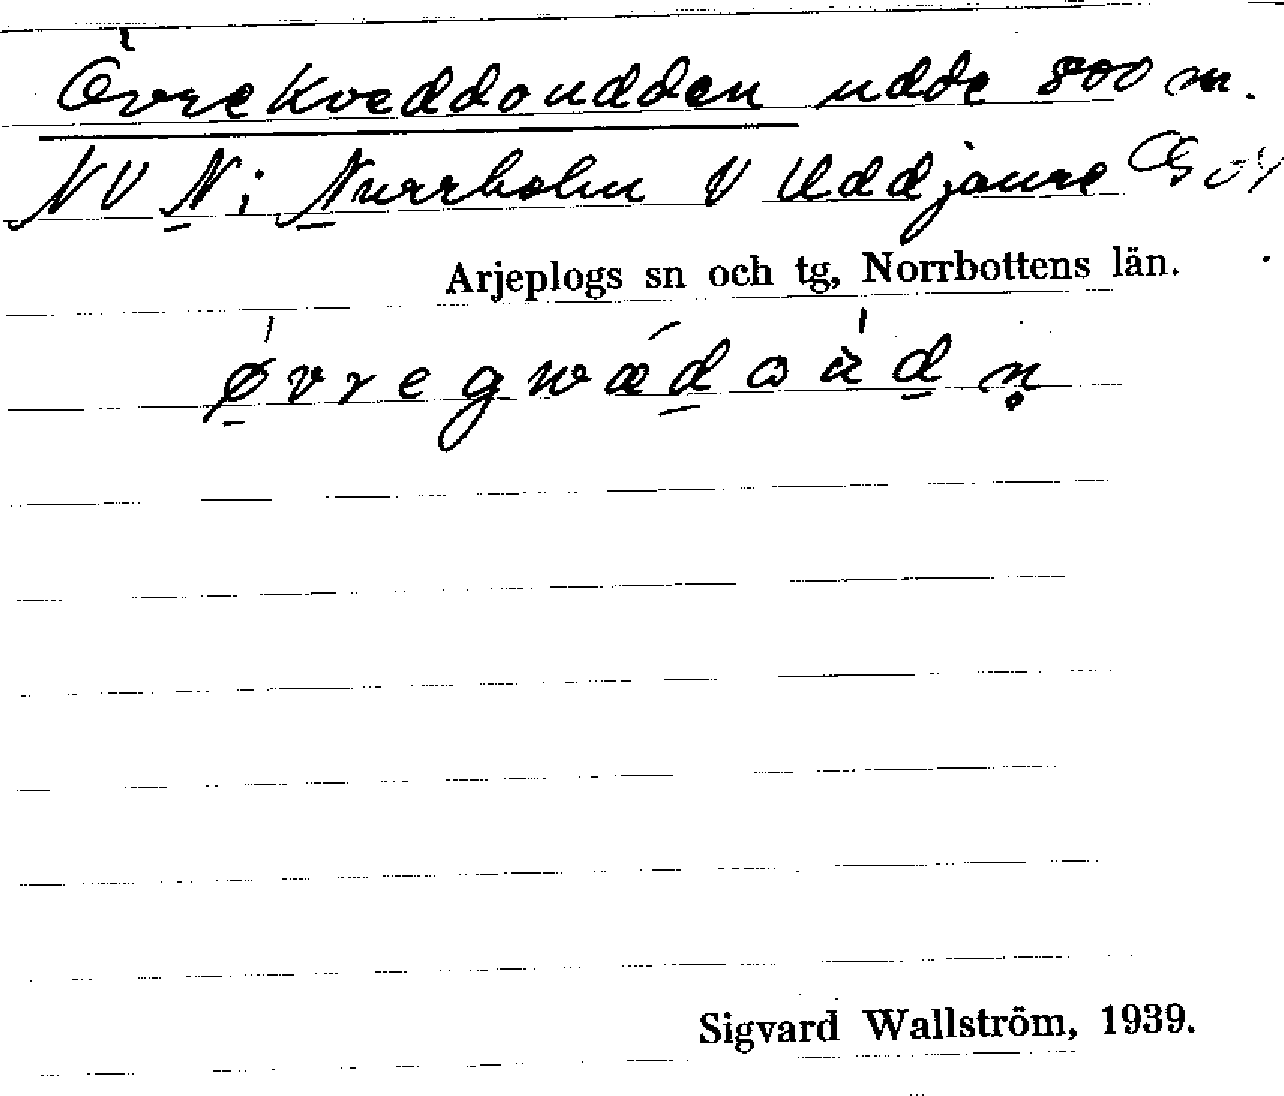 Övrekvæddoudden udde 800 m.
NV N: Nurrholm V Uddjaure
Arjeplogs sn och tg, Norrbottens län.
øvregwǽdɷud̀n̥
Sigvard Wallström, 1939.